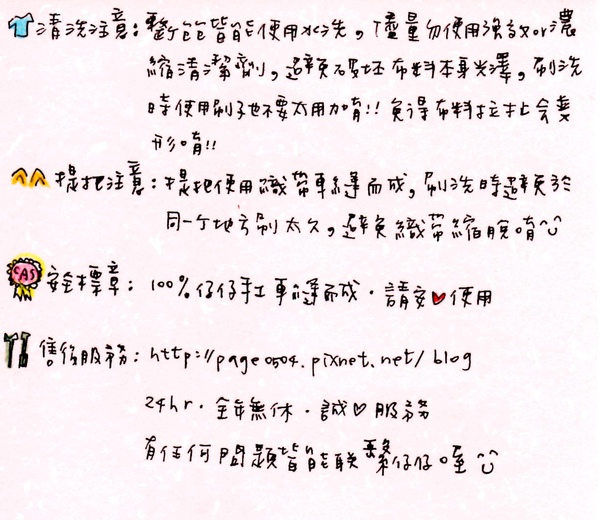 清洗注意：整個皆能使用水洗，儘量勿使用強效or濃
縮清潔劑，避免破坏布料本身光澤，刷洗
時使用刷子也不要太用力唷!! 免得布料拉扯會變
形唷!!
提把注意：提把使用織帶車縫而成，刷洗時避免於
同一个地方刷太久，避免織帶縮脫唷
CAS 安全標章：100%仔仔手工車縫而成．請安♥使用
售後服務：http://page0504.pixnet.net/blog
24hr．全年無休．誠♡服務
有任何問題皆能联繫仔仔喔